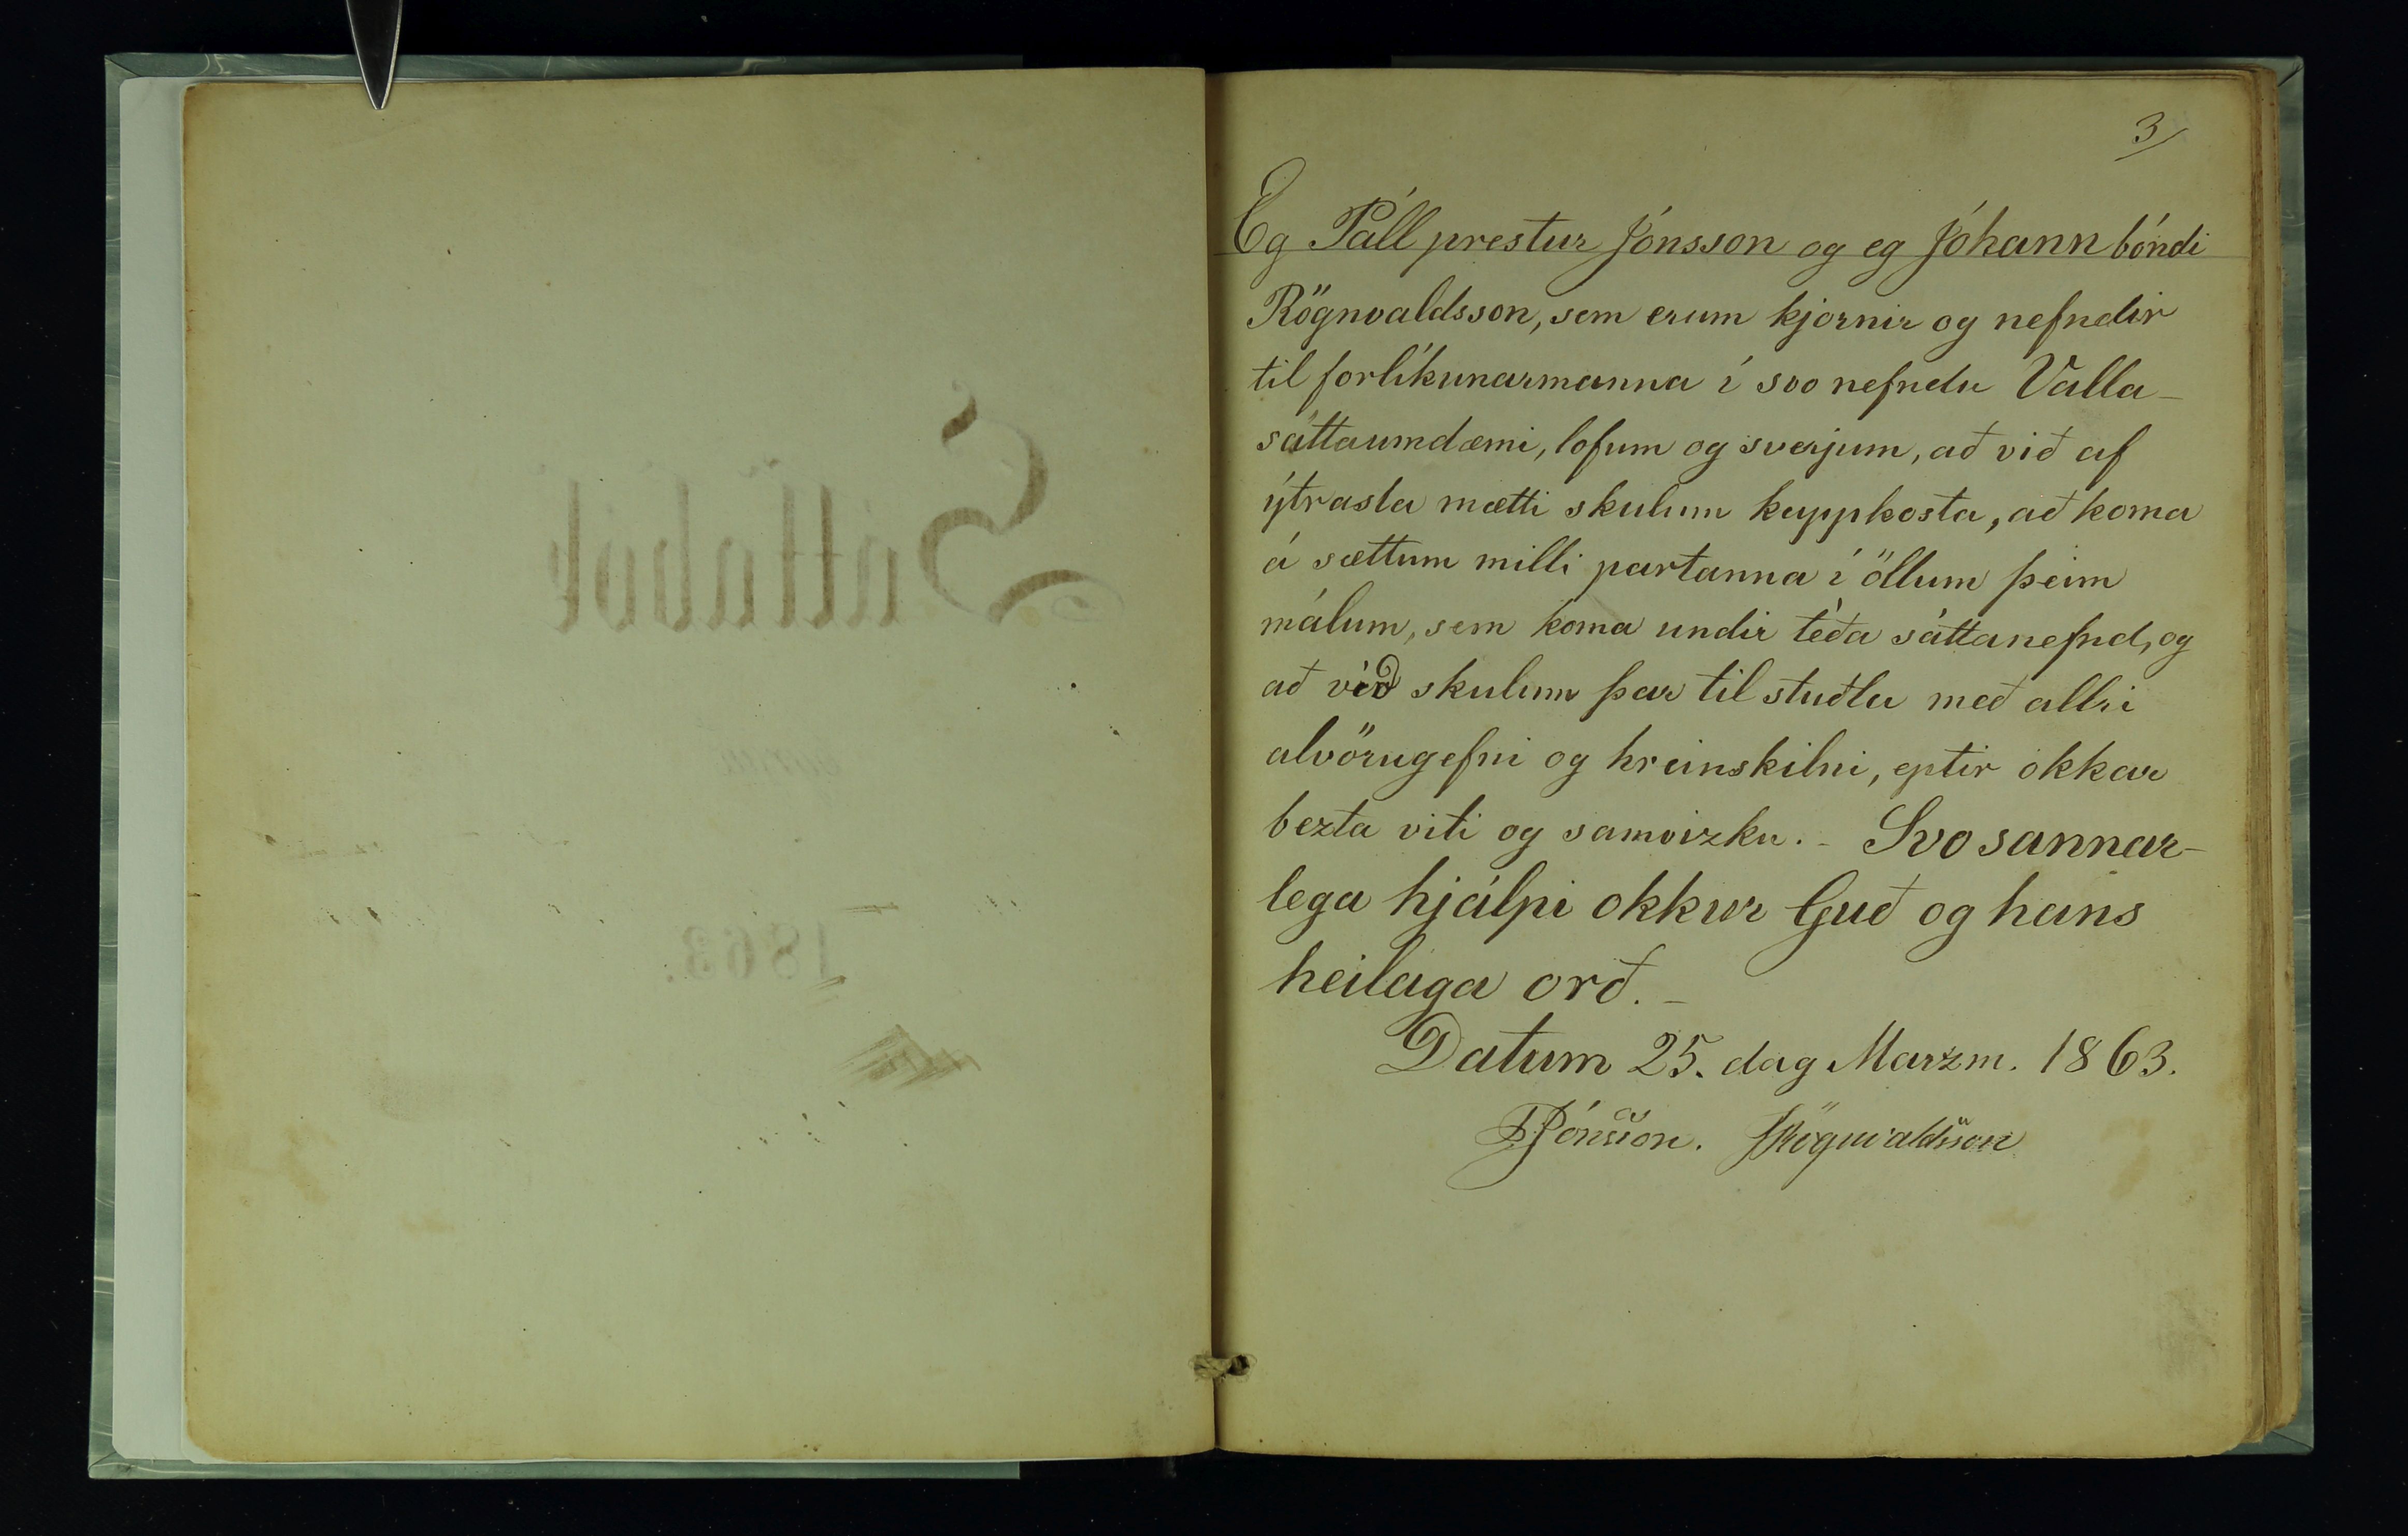 3/
Eg Páll prestur Jónsson og eg Jóhann bóndi
Rögnvaldsson, sem erum kjornir og nefndir
til forlíkunarmanna í svo nefndu Valla-
sáttaumdæmi, lofum og sverjum, að við af
ýtrasta mætti skulum kappkosta, að koma
á sættum milli partanna í öllum þeim
málum, sem koma undir téða sáttanefnd, og
að við skulum þar til stuðla með allri
alvörugefni og hreinskilni, eptir okkar
bezta viti og samvizku. - Svo sannar-
lega hjálpi okkur Guð og hans
heilaga orð. -
Datum 25. dag Marzm. 1863.
PJónsson. JRögnvaldsson
Sáttabók
1863.